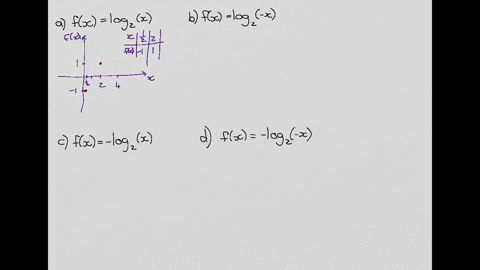 a) f(x) = log₂(x)
b) f(x) = log₂(-x)
f(x)
x | ½ | 2
f(x) | -1 | 1
1
½ 2 4 x
-1
c) f(x) = -log₂(x)
d) f(x) = -log₂(-x)